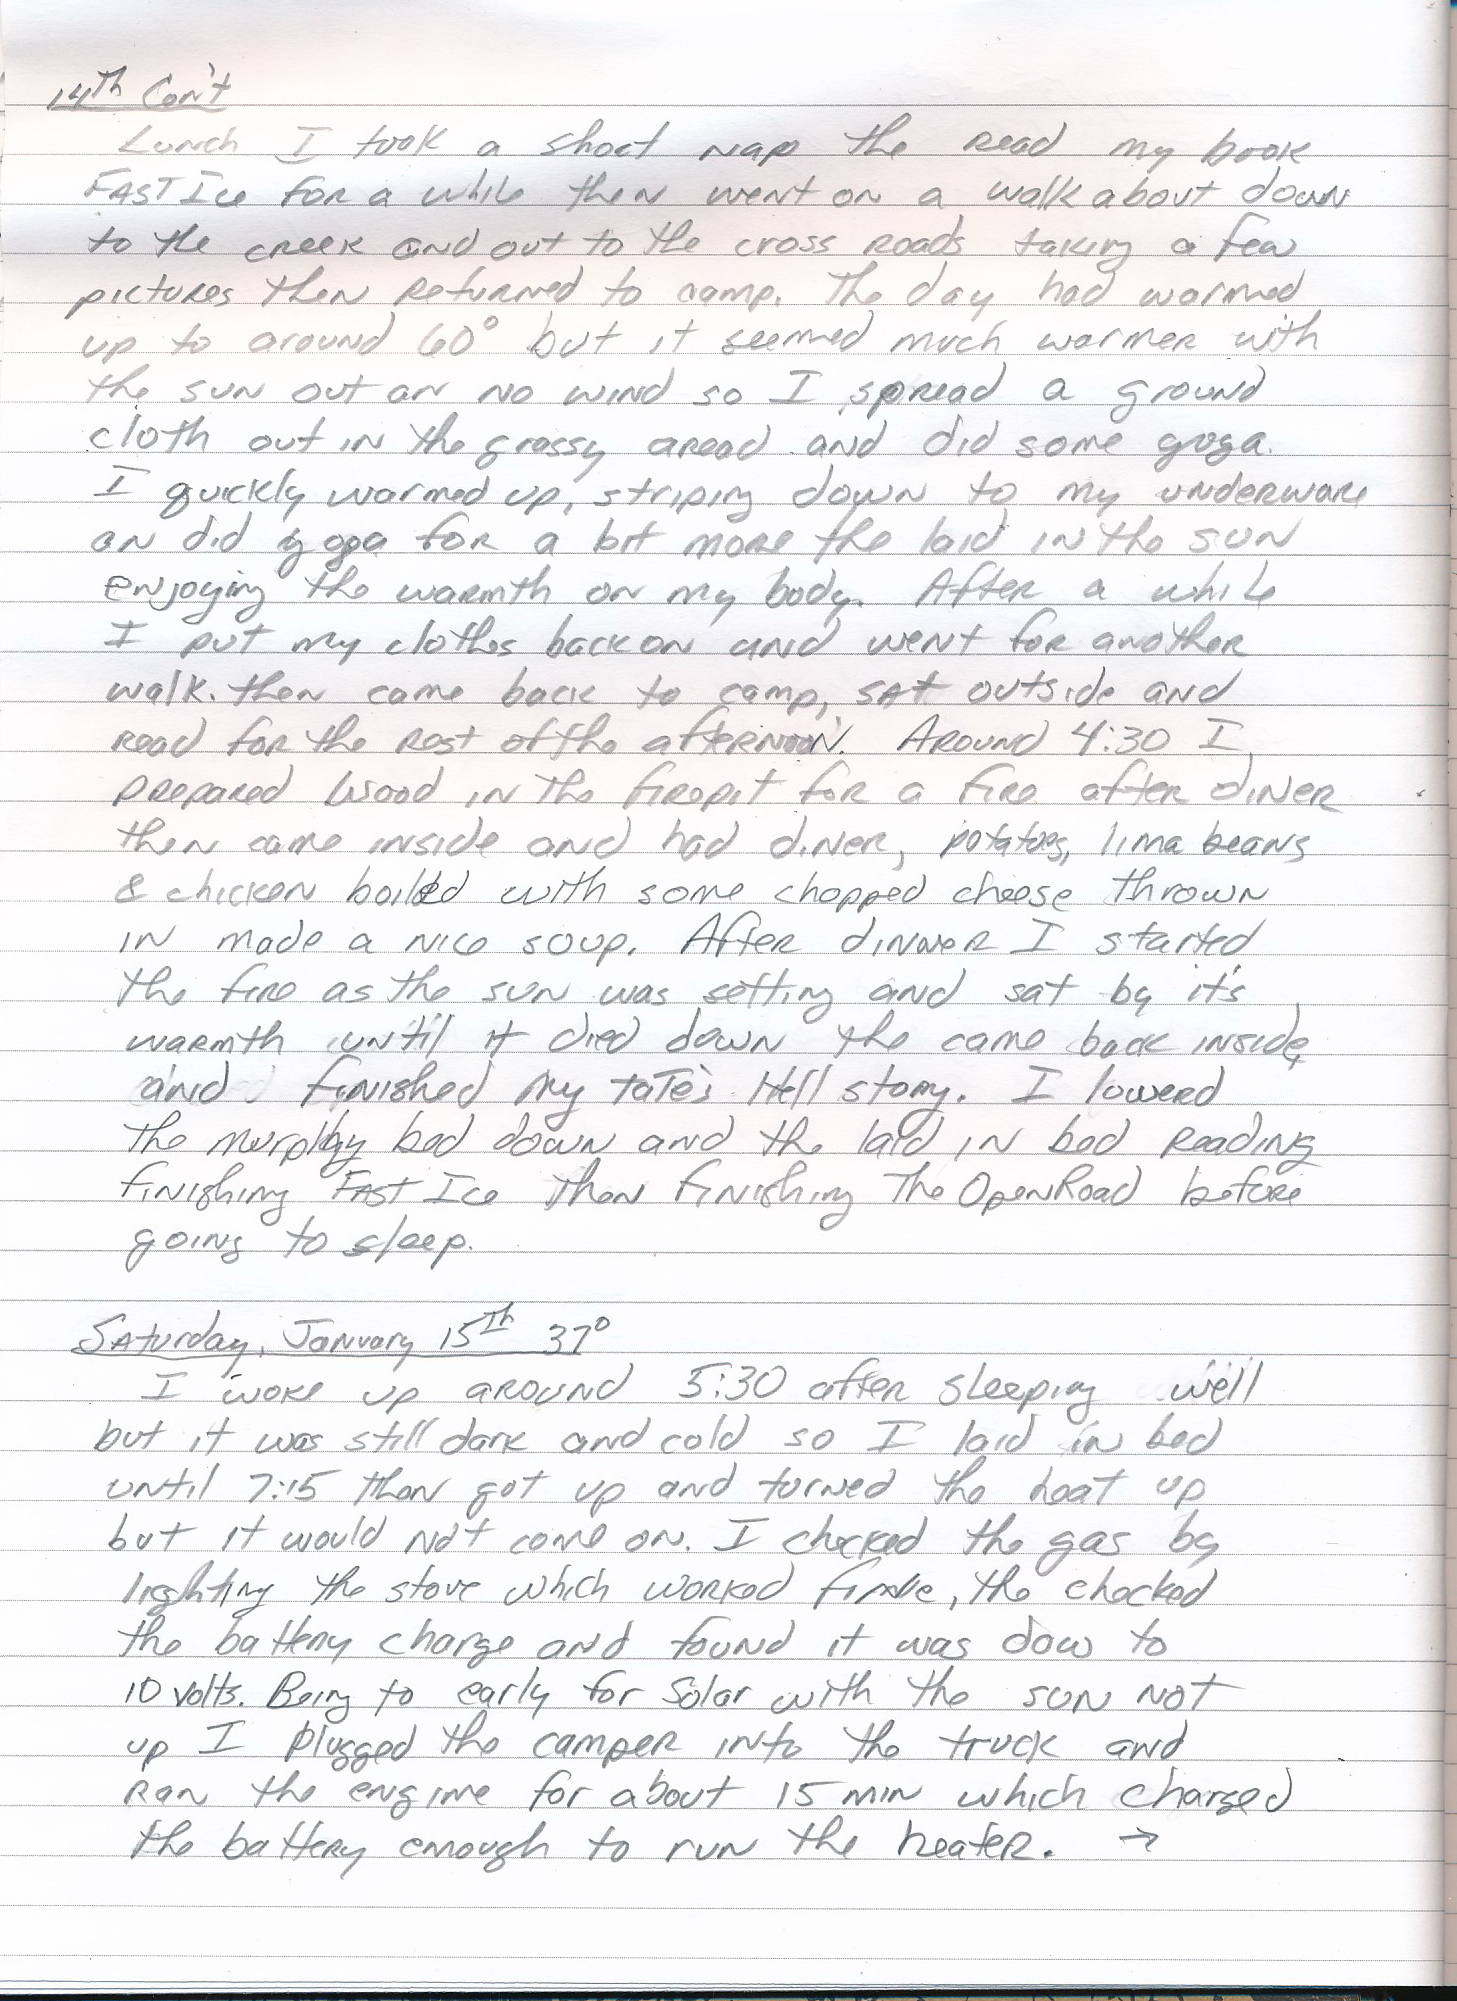 14th Con't
Lunch I took a short nap the read my book
FAST Ice for a while then went on a walk about down
to the creek and out to the cross roads taking a few
pictures then returned to camp. The day had warmed
up to around 60° but it seemed much warmer with
the sun out an no wind so I spread a ground
cloth out in the grassy aread and did some yoga.
I quickly warmed up, striping down to my underware
an did yoga for a bit more the laid in the sun
enjoying the warmth on my body. After a while
I put my clothes back on and went for another
walk. then came back to camp, sat outside and
read for the rest of the afternoon. Around 4:30 I
prepared wood in the firepit for a fire after diner
then came inside and had diner, potatoes, lima beans
& chicken boiled with some chopped cheese thrown
in made a nice soup. After dinner I started
the fire as the sun was setting and sat by it's
warmth until it died down the came back inside
and finished my Tate's Hell story. I lowerd
the murphy bed down and the laid in bed reading
finishing FAST Ice then finishing The Open Road before
going to sleep.
Saturday, January 15th 37°
I woke up around 5:30 after sleeping well
but it was still dark and cold so I laid in bed
until 7:15 then got up and turned the heat up
but it would not come on. I checked the gas by
lighting the stove which worked fine, the checked
the battery charge and found it was dow to
10 volts. Being to early for Solar with the sun not
up I plugged the camper into the truck and
ran the engine for about 15 min which charged
the battery enough to run the heater. →